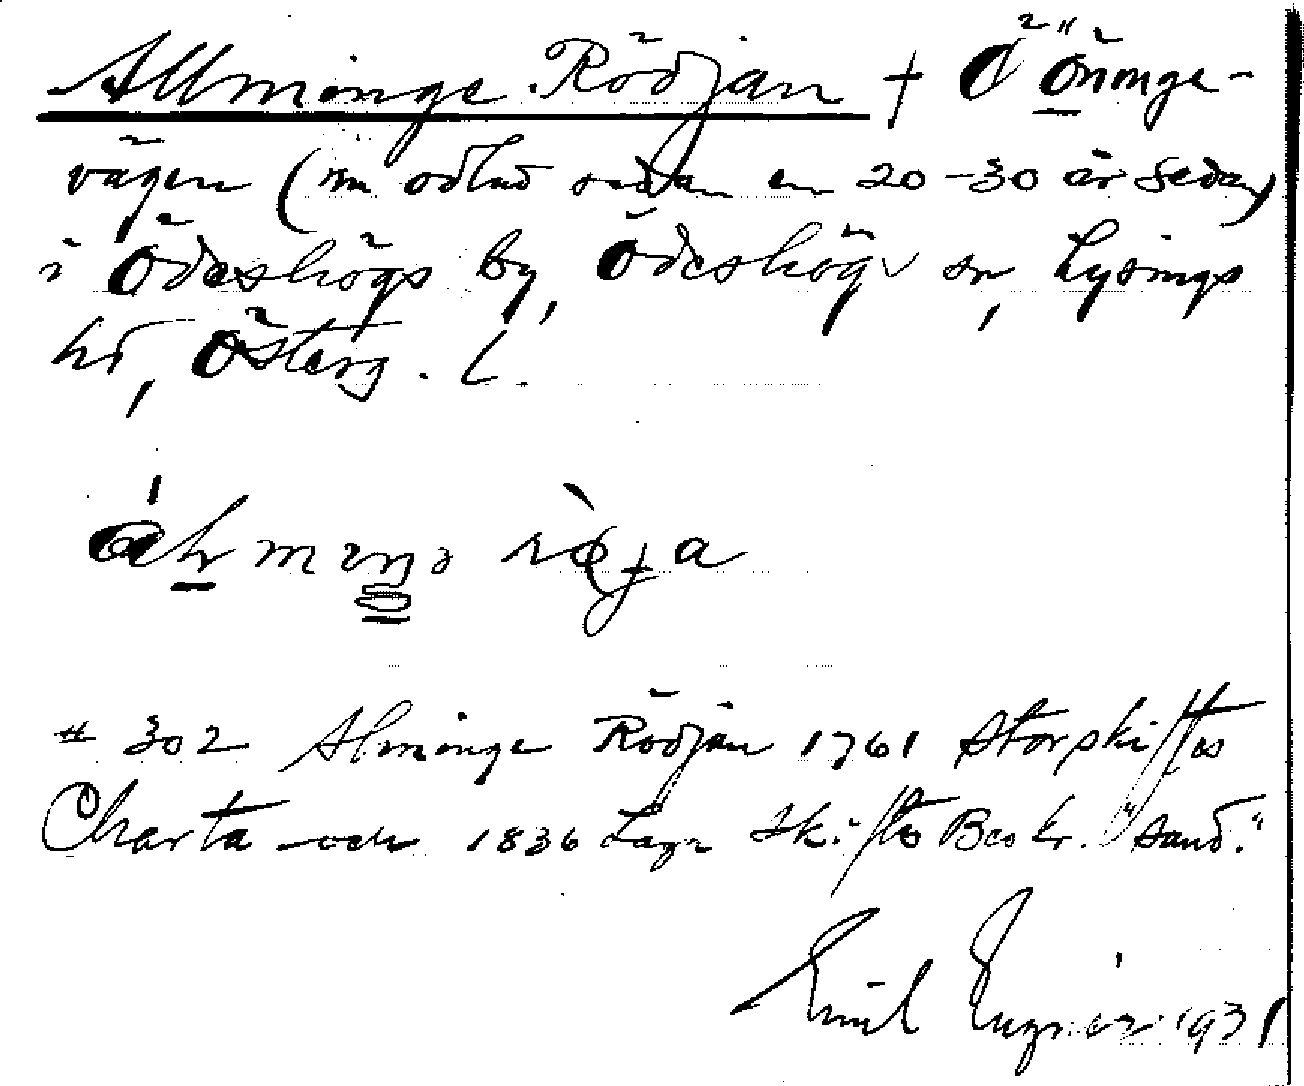 Allminge Rödjan + Ö Öninge-
vägen (nu odlad sedan en 20-30 år sedan)
i Ödeshögs by, Ödeshögs sn, Lysings
hd, Österg. L.
röja
# 302 Alminge Rödjan 1761 Storskiftes
Charta och 1836 Laga Skifts Beskr. "Sand."
Emil 1931